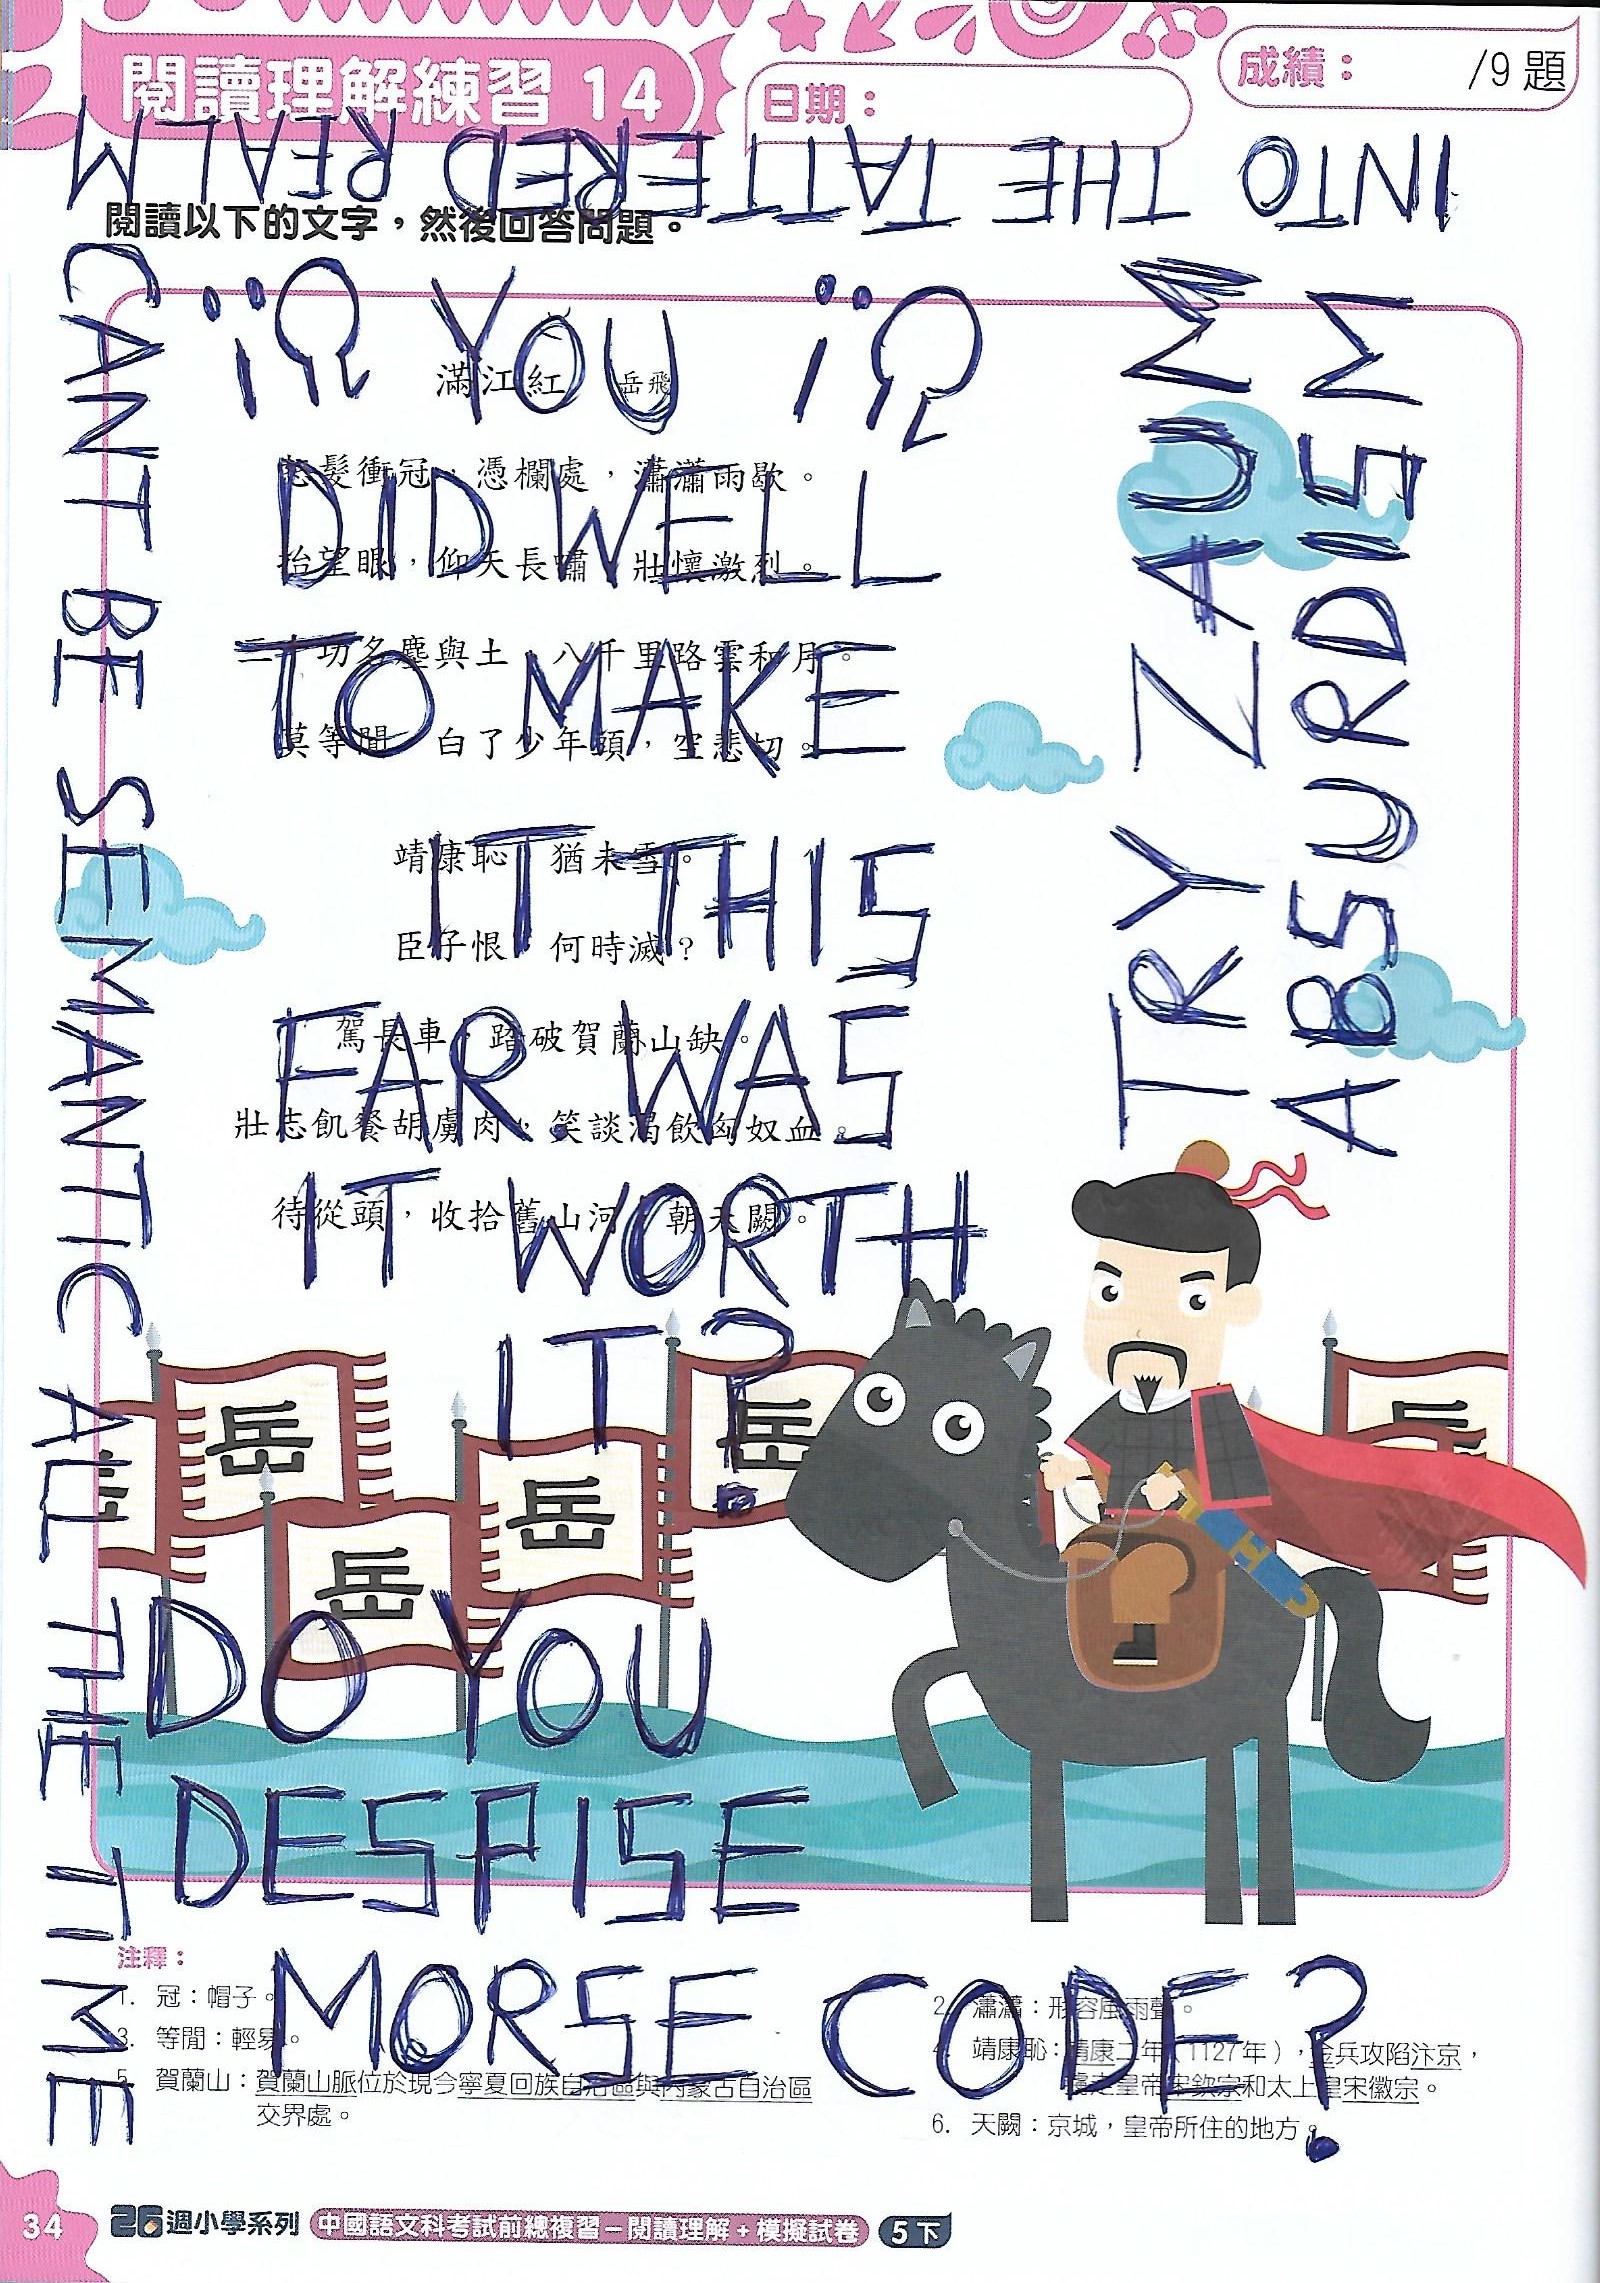 閱讀理解練習 14
日期：
成績： /9 題
INTO THE TATTERED REALM
閱讀以下的文字，然後回答問題。
滿江紅 岳飛
怒髮衝冠，憑欄處，瀟瀟雨歇。
抬望眼，仰天長嘯，壯懷激烈。
三十功名塵與土，八千里路雲和月。
莫等閒，白了少年頭，空悲切。
靖康恥，猶未雪。
臣子恨，何時滅？
駕長車，踏破賀蘭山缺。
壯志飢餐胡虜肉，笑談渴飲匈奴血。
待從頭，收拾舊山河，朝天闕。
YOU
DID WELL
TO MAKE
IT THIS
FAR. WAS
IT WORTH
IT?
DO YOU
DESPISE
MORSE CODE?
TRY ZAUM
ABSURDISM
CANT BE SEMANTIC ALL THE TIME
岳
岳
岳
岳
岳
岳
注釋：
1. 冠：帽子。
2. 瀟瀟：形容風雨聲。
3. 等閒：輕易。
4. 靖康恥：靖康二年（1127年），金兵攻陷汴京，
虜走皇帝宋欽宗和太上皇宋徽宗。
5. 賀蘭山：賀蘭山脈位於現今寧夏回族自治區與內蒙古自治區
交界處。
6. 天闕：京城，皇帝所住的地方。
34
26週小學系列 中國語文科考試前總複習－閱讀理解＋模擬試卷 5下